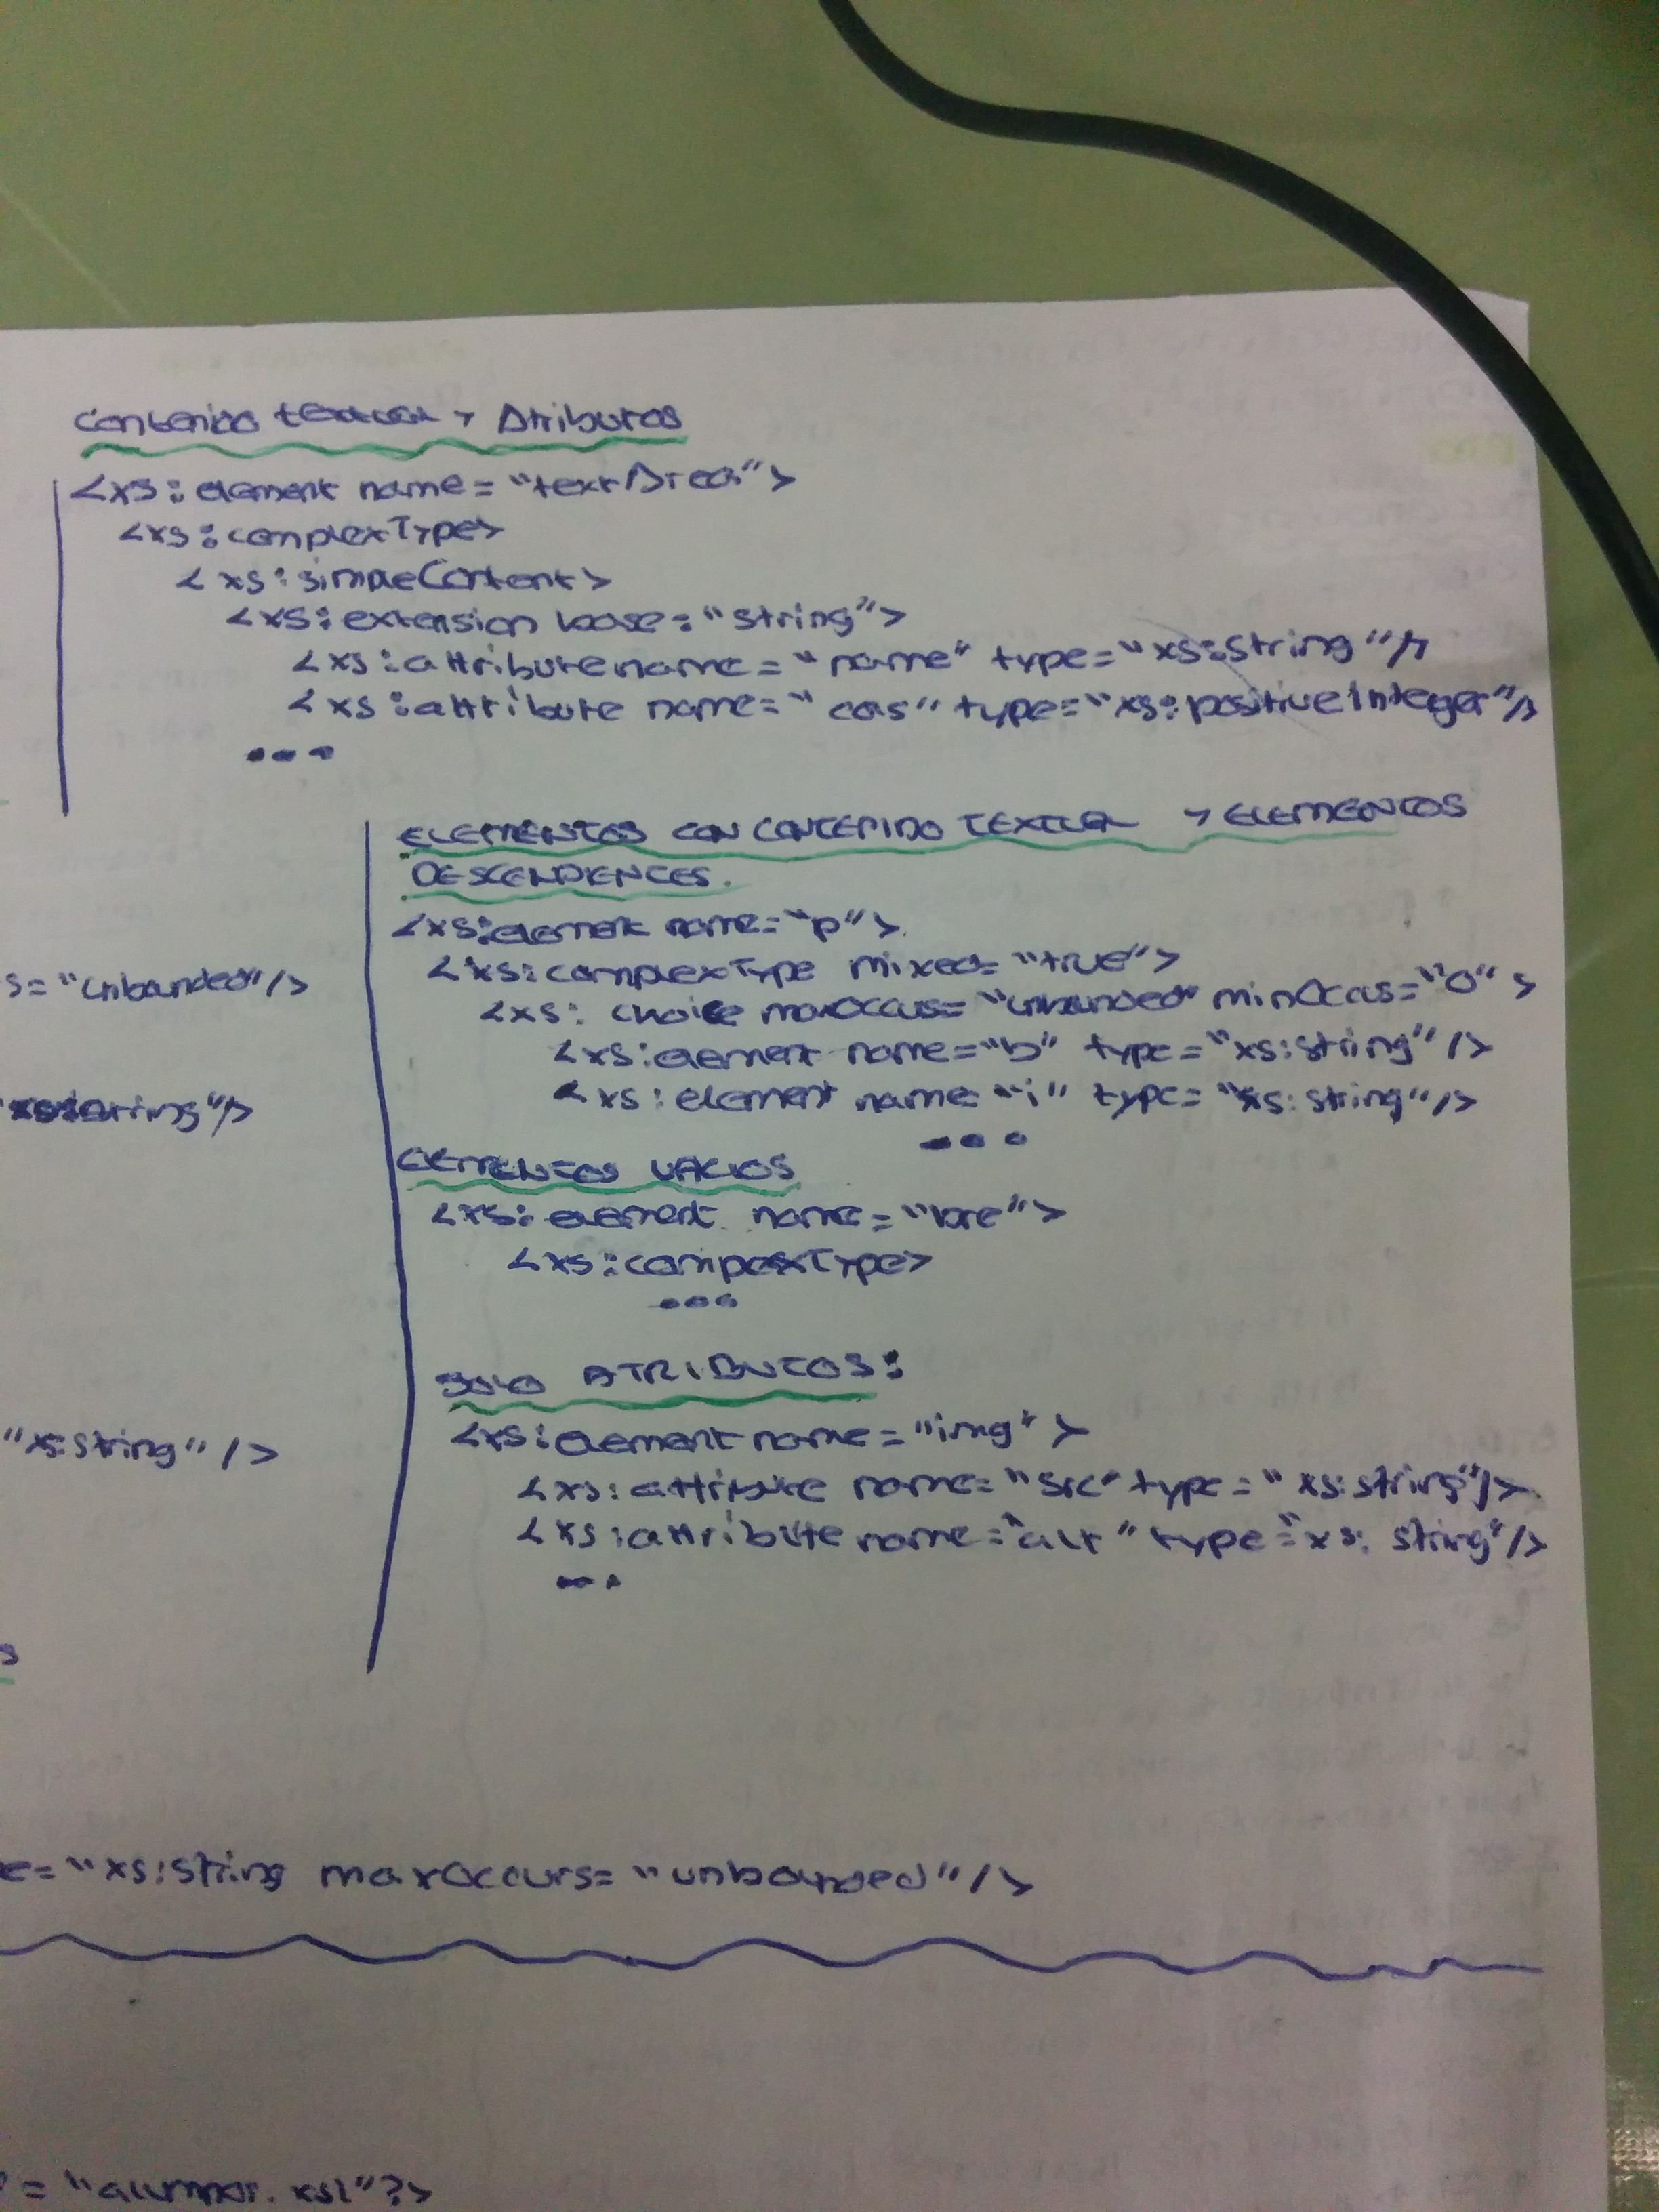 Contenido textual y Atributos
<xs:element name="textArea">
<xs:complexType>
<xs:simpleContent>
<xs:extension base="string">
<xs:attribute name="name" type="xs:string"/>
<xs:attribute name="cols" type="xs:positiveInteger"/>
...
ELEMENTOS CON CONTENIDO TEXTUAL Y ELEMENTOS
DESCENDENTES.
<xs:element name="p">
<xs:complexType mixed="true">
s="unbounded"/>
<xs:choice maxOccurs="unbounded" minOccurs="0">
<xs:element name="b" type="xs:string"/>
<xs:element name="i" type="xs:string"/>
xs:string"/>
...
ELEMENTOS VACIOS
<xs:element name="bre">
<xs:complexType>
...
SOLO ATRIBUTOS:
<xs:element name="img">
"xs:string"/>
<xs:attribute name="src" type="xs:string"/>
<xs:attribute name="alt" type="xs:string"/>
...
s
e="xs:string maxOccurs="unbounded"/>
="alumnos.xsl"?>